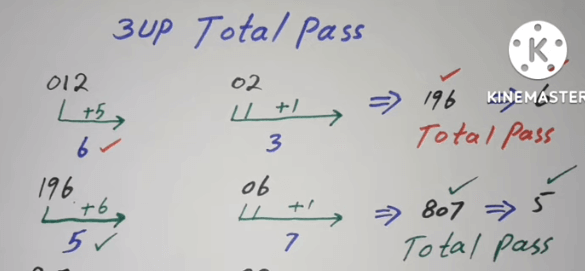 3UP Total Pass
012 02
+5 +1 ⇒ 196 ⇒ 6
6 ✓ 3 Total Pass
KINEMASTER
196 06
+6 +1 ⇒ 807 ⇒ 5
5 ✓ 7 Total Pass